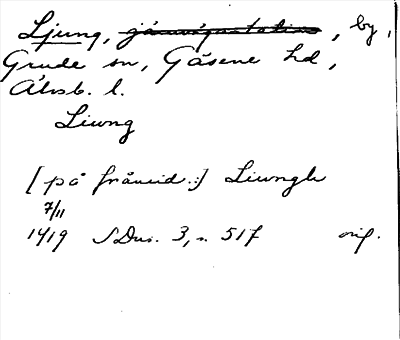 Ljung, järnvägsstation, by,
Grude sn, Gäsene hd,
Älvsb. l.
Liung
[på frånsid.:] Liungh
7/11
1419 SDns. 3, s. 517 orig.